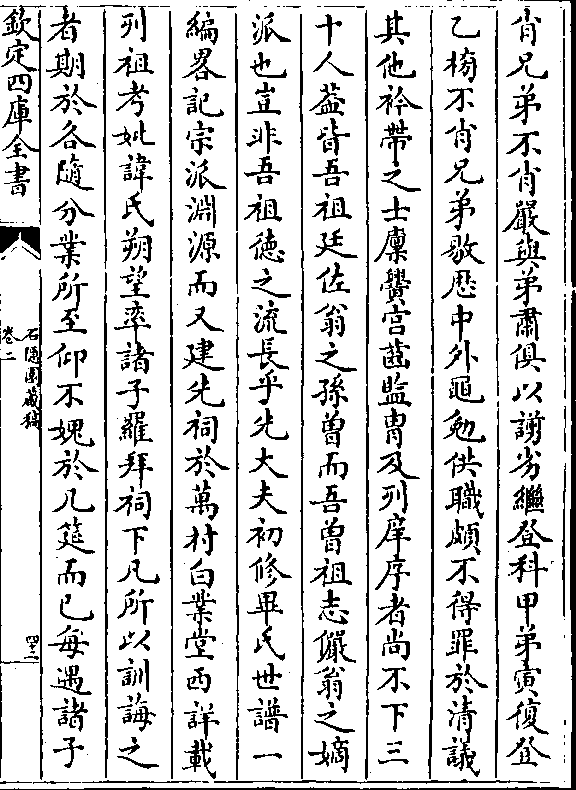 肯兄弟不肖嚴與弟肅俱以謭劣繼登科甲弟寅復登
乙榜不肖兄弟敭歴中外黽勉供職頗不得罪於清議
其他衿帶之士廪黌宫蓝監胄及列庠序者尚不下三
十人葢皆吾祖廷佐翁之孫曽而吾曽祖志儼翁之嫡
派也豈非吾祖徳之流長乎先大夫初修畢氏世譜一
編畧記宗派淵源而又建先祠於萬村白業堂西詳載
列祖考妣諱氏朔望率諸子羅拜祠下凡所以訓誨之
者期於各隨分業所至仰不媿於几筵而已每遇諸子
欽定四庫全書
石隠園藏稿
卷二
四十二